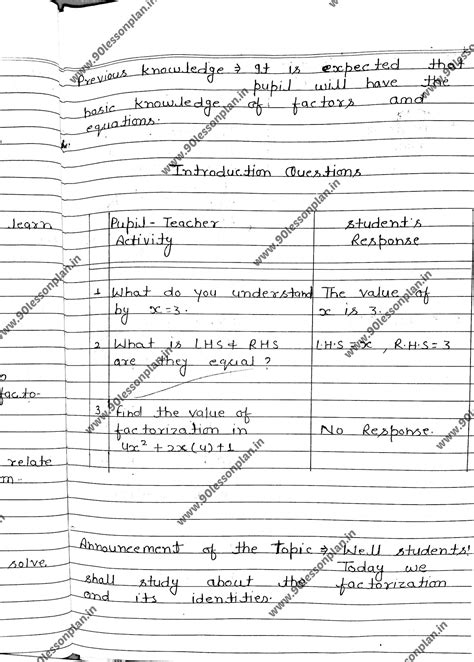 Previous knowledge ⇒ It is expected that
pupil will have the
basic knowledge of factors and
equations.
Introduction Questions
learn
Pupil - Teacher
Activity
Student's
Response
1. What do you understand
by x=3.
The value of
x is 3.
2. What is LHS & RHS
are they equal ?
L.H.S = x , R.H.S = 3
facto-
3. Find the value of
factorization in
4x² + 2x(4)+1
No Response.
relate
Announcement of the Topic ⇒ Well students!
Today we
solve
shall study about the factorization
and its identities.
www.90lessonplan.in
www.90lessonplan.in
www.90lessonplan.in
www.90lessonplan.in
www.90lessonplan.in
www.90lessonplan.in
www.90lessonplan.in
www.90lessonplan.in
www.90lessonplan.in